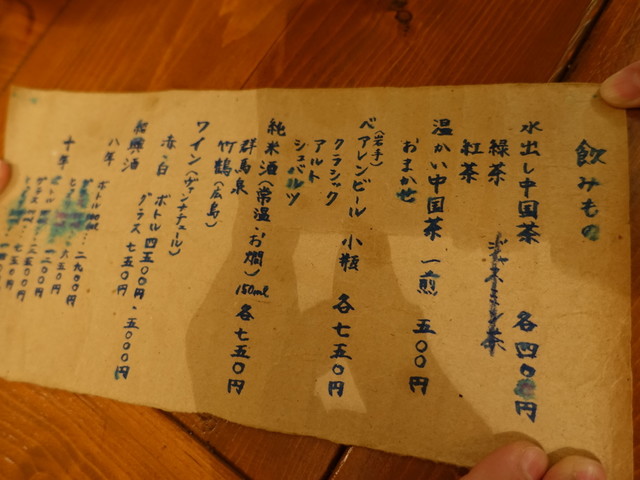 飲みもの
水出し中国茶 各四〇〇円
緑茶 ジャスミン茶
紅茶
温かい中国茶 一煎 五〇〇円
おまかせ
(岩手)
ベアレンビール 小瓶 各七五〇円
クラシック
アルト
シュバルツ
純米酒(常温・お燗) 150ml 各七五〇円
群馬泉
竹鶴(広島)
ワイン(ヴァンナチュール)
赤・白 ボトル 四五〇〇円・五〇〇〇円
グラス 七五〇円
紹興酒
八年 ボトル
十年